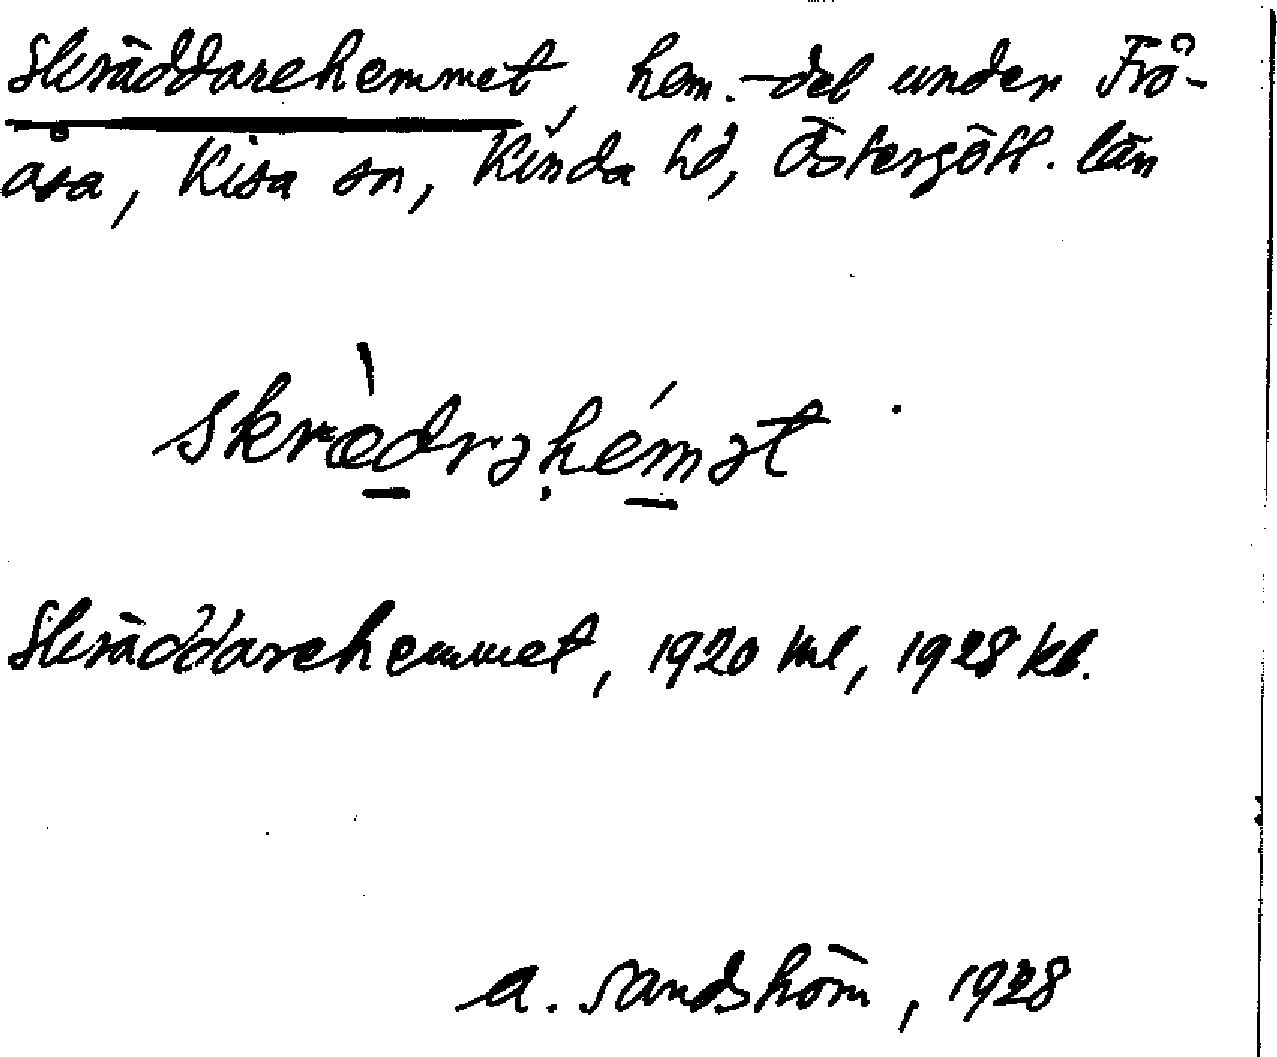 Skräddarehemmet, hem.-del under Frö-
åsa, Kisa sn, Kinda hd, Östergötl. län
skræ̀drəhémət.
Skräddarehemmet, 1920 ml, 1928 kb.
A. Sandström, 1928